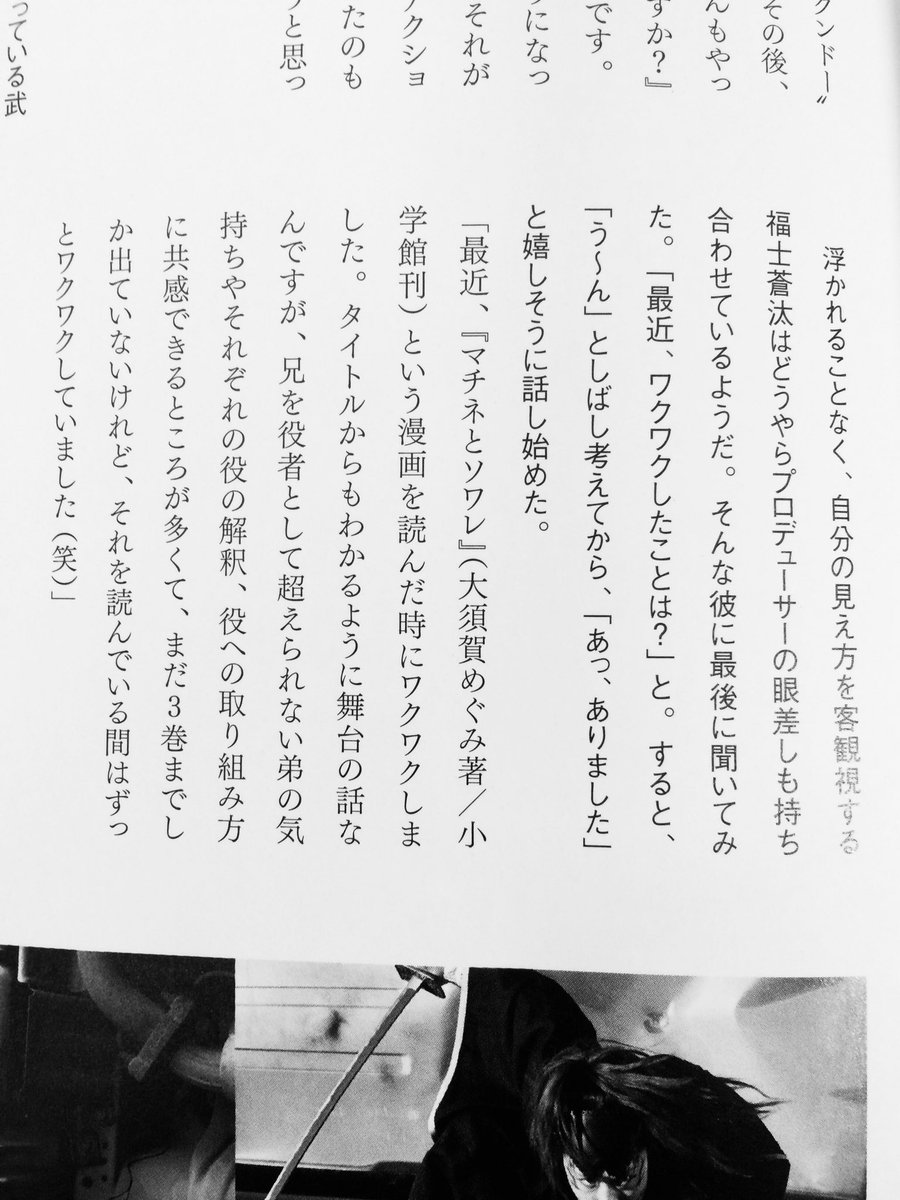 クンドー〟
その後、
んもやっ
すか？』
です。
うになっ
それが
アクショ
たのも
うと思っ
っている武
浮かれることなく、自分の見え方を客観視する
福士蒼汰はどうやらプロデューサーの眼差しも持ち
合わせているようだ。そんな彼に最後に聞いてみ
た。「最近、ワクワクしたことは？」と。すると、
「う〜ん」としばし考えてから、「あっ、ありました」
と嬉しそうに話し始めた。
「最近、『マチネとソワレ』（大須賀めぐみ著／小
学館刊）という漫画を読んだ時にワクワクしま
した。タイトルからもわかるように舞台の話な
んですが、兄を役者として超えられない弟の気
持ちやそれぞれの役の解釈、役への取り組み方
に共感できるところが多くて、まだ3巻までし
か出ていないけれど、それを読んでいる間はずっ
とワクワクしていました（笑）」